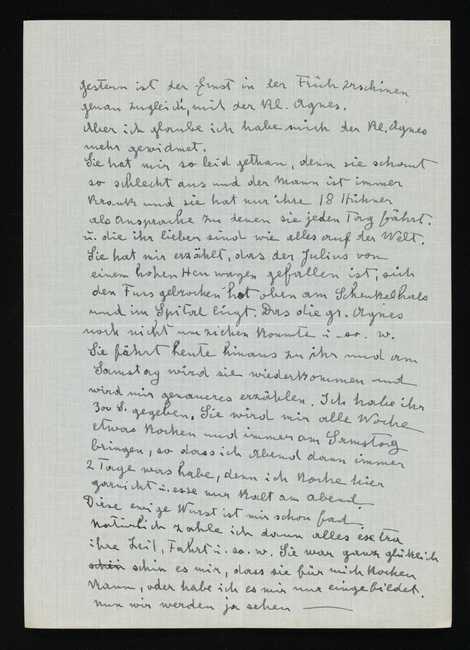 Gestern ist der Ernst in der Früh erschinen
genau zugleich, mit der Kl. Agnes.
Aber ich glaube ich habe mich der Kl. Agnes
mehr gewidmet.
Sie hat mir so leid gethan, denn sie schaut
so schlecht aus und der Mann ist immer
Krank und sie hat nur ihre 18 Hühner
als Ansprache zu denen sie jeden Tag fährt.
u. die ihr lieber sind wie alles auf der Welt.
Sie hat mir erzählt, das der Julius von
einem hohen Heuwagen gefallen ist, sich
den Fuss gebrochen hat oben am Schenkelhals
und im Spital liegt. Das die gr. Agnes
noch nicht umziehen konnte u. so. w.
Sie fährt heute hinaus zu ihr und am
Samstag wird sie wiederkommen und
wird mir genaueres erzählen. Ich habe ihr
300 S. gegeben. Sie wird mir alle Woche
etwas Kochen und immer am Samstag
bringen, so dass ich Abend dann immer
2 Tage was habe, denn ich Koche hier
garnicht u. esse nur Kalt am abend.
Diese ewige Wurst ist mir schon fad.
Natürlich zahle ich dann alles extra
ihre Zeit, Fahrt u. so. w. Sie war ganz glücklich
schin es mir, dass sie für mich Kochen
Kann, oder habe ich es mir nur eingebildet.
Nun wir werden ja sehen —